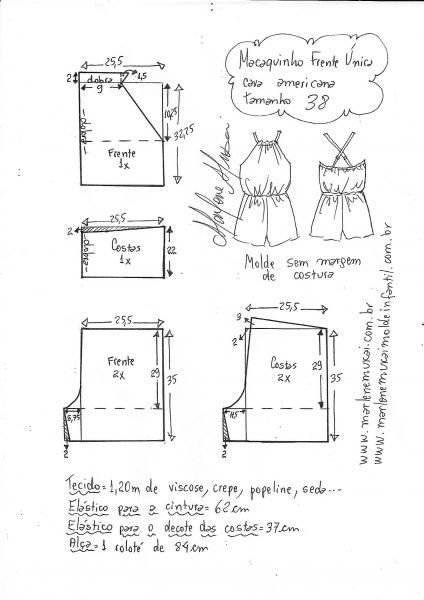 Macaquinho Frente Única
cava americana
tamanho 38
25,5
2
dobra
1,5
9
dobra
10,25
32,25
Frente
1x
25,5
2
dobra
Costas
1x
22
Marlene Mukai
Molde sem margem
de costura
25,5
Frente
2x
29
35
5,75
2
25,5
3
2
Costas
2x
29
35
11,5
2
www.marlenemukai.com.br
www.marlenemukaimoldeinfantil.com.br
Tecido=1,20m de viscose, crepe, popeline, seda...
Elástico para a cintura=62cm
Elástico para o decote das costas=37cm
Alça=1 rolotê de 84cm